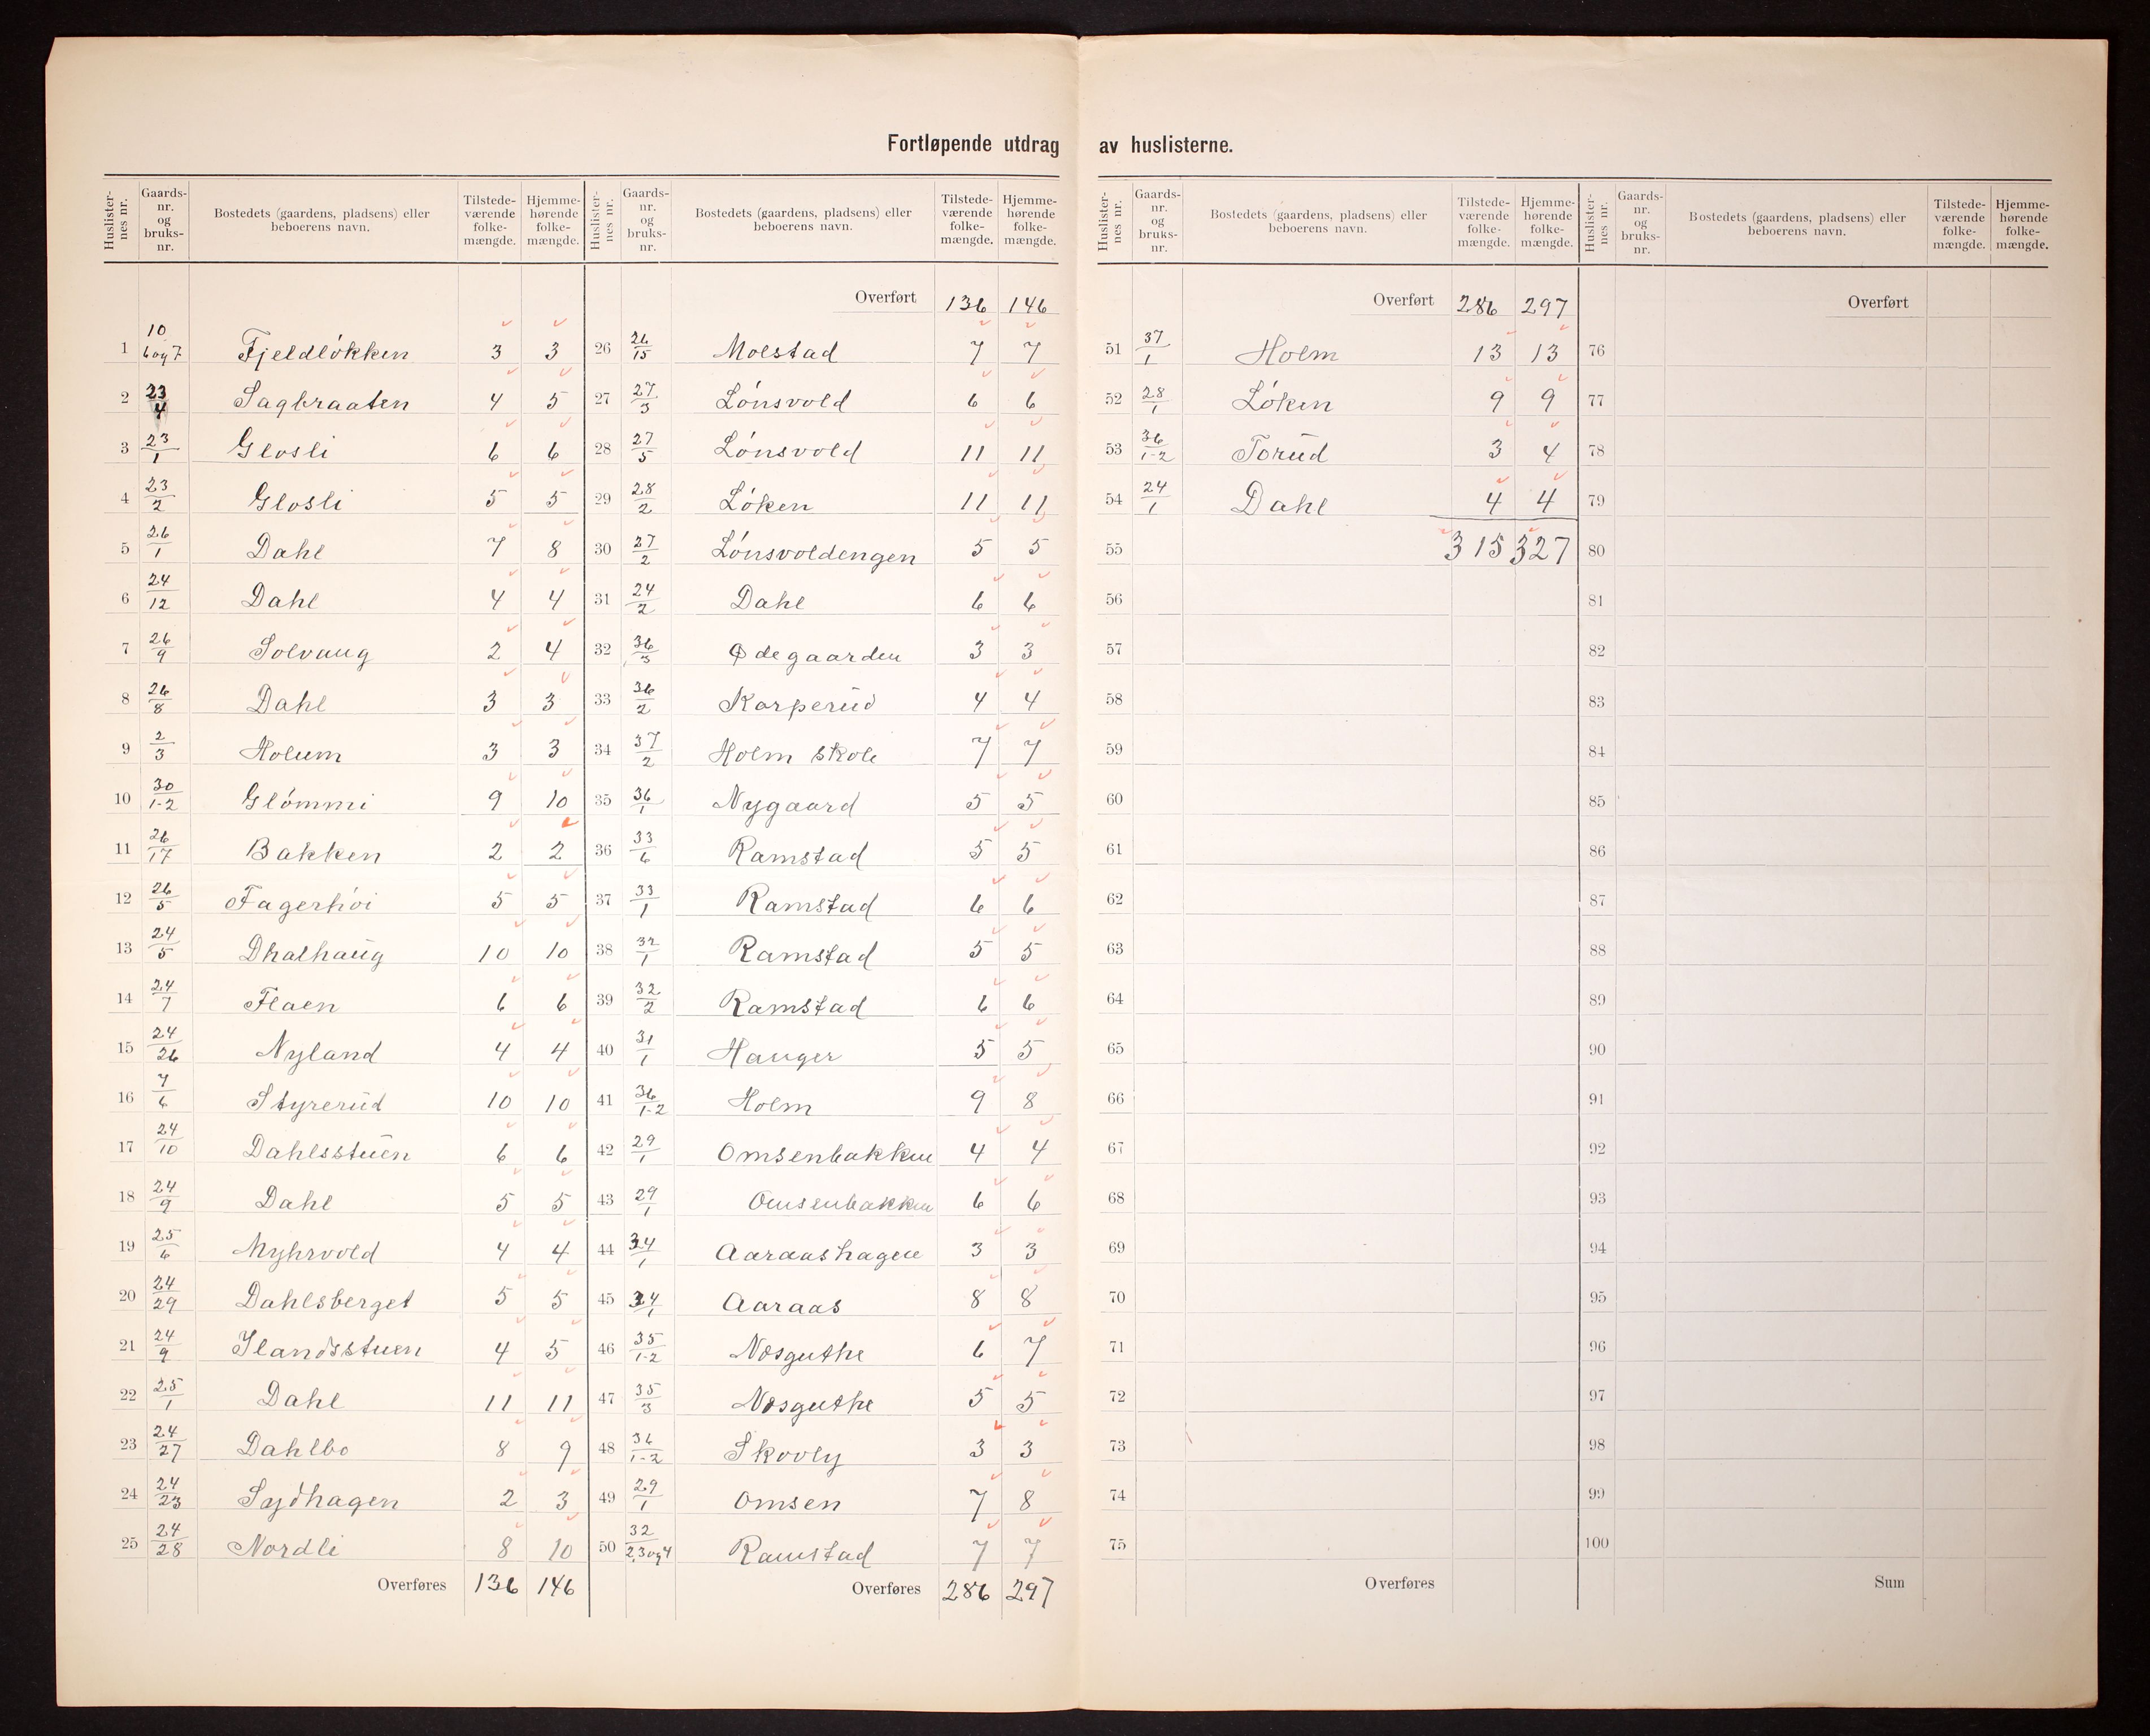 Fortløpende utdrag av huslisterne.
Huslister-nes nr. | Gaards-nr. og bruks-nr. | Bostedets (gaardens, pladsens) eller beboerens navn. | Tilstede-værende folke-mængde. | Hjemme-hørende folke-mængde.
1 10/6og7 Fjeldløkken 3 3
2 23/4 Sagbraaten 4 5
3 23/1 Glosli 6 6
4 23/2 Glosli 5 5
5 26/1 Dahl 7 8
6 24/12 Dahl 4 4
7 26/9 Solvaug 2 4
8 26/8 Dahl 3 3
9 2/3 Holum 3 3
10 30/1-2 Glømmi 9 10
11 26/17 Bakken 2 2
12 26/5 Fagerhøi 5 5
13 24/5 Dhalhaug 10 10
14 24/7 Flaen 6 6
15 24/26 Nyland 4 4
16 7/6 Styrerud 10 10
17 24/10 Dahlsstuen 6 6
18 24/9 Dahl 5 5
19 25/6 Myhrvold 4 4
20 24/29 Dahlsberget 5 5
21 24/9 Ilandsstuen 4 5
22 25/1 Dahl 11 11
23 24/27 Dahlbo 8 9
24 24/23 Sydhagen 2 3
25 24/28 Nordli 8 10
Overføres 136 146
Huslister-nes nr. | Gaards-nr. og bruks-nr. | Bostedets (gaardens, pladsens) eller beboerens navn. | Tilstede-værende folke-mængde. | Hjemme-hørende folke-mængde.
Overført 136 146
26 26/15 Molstad 7 7
27 27/3 Lønsvold 6 6
28 27/5 Lønsvold 11 11
29 28/2 Løken 11 11
30 27/2 Lønsvoldengen 5 5
31 24/2 Dahl 6 6
32 36/3 Ødegaarden 3 3
33 36/2 Korperud 4 4
34 37/2 Holm skole 7 7
35 36/1 Nygaard 5 5
36 33/6 Ramstad 5 5
37 33/1 Ramstad 6 6
38 32/1 Ramstad 5 5
39 32/2 Ramstad 6 6
40 31/1 Hauger 5 5
41 36/1-2 Holm 9 8
42 29/1 Omsenbakken 4 4
43 29/1 Omsenbakken 6 6
44 34/1 Aaraashagen 3 3
45 34/1 Aaraas 8 8
46 35/1-2 Nøsguthe 6 7
47 35/3 Nøsguthe 5 5
48 36/1-2 Skovly 3 3
49 29/1 Omsen 7 8
50 32/2,3og4 Ramstad 7 7
Overføres 286 297
Huslister-nes nr. | Gaards-nr. og bruks-nr. | Bostedets (gaardens, pladsens) eller beboerens navn. | Tilstede-værende folke-mængde. | Hjemme-hørende folke-mængde.
Overført 286 297
51 37/1 Holm 13 13
52 28/1 Løken 9 9
53 36/1-2 Torud 3 4
54 24/1 Dahl 4 4
55 315 327
56
57
58
59
60
61
62
63
64
65
66
67
68
69
70
71
72
73
74
75
Overføres
Huslister-nes nr. | Gaards-nr. og bruks-nr. | Bostedets (gaardens, pladsens) eller beboerens navn. | Tilstede-værende folke-mængde. | Hjemme-hørende folke-mængde.
Overført
76
77
78
79
80
81
82
83
84
85
86
87
88
89
90
91
92
93
94
95
96
97
98
99
100
Sum